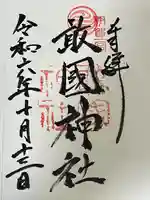 奉拝
敢國神社
令和六年十月十三日